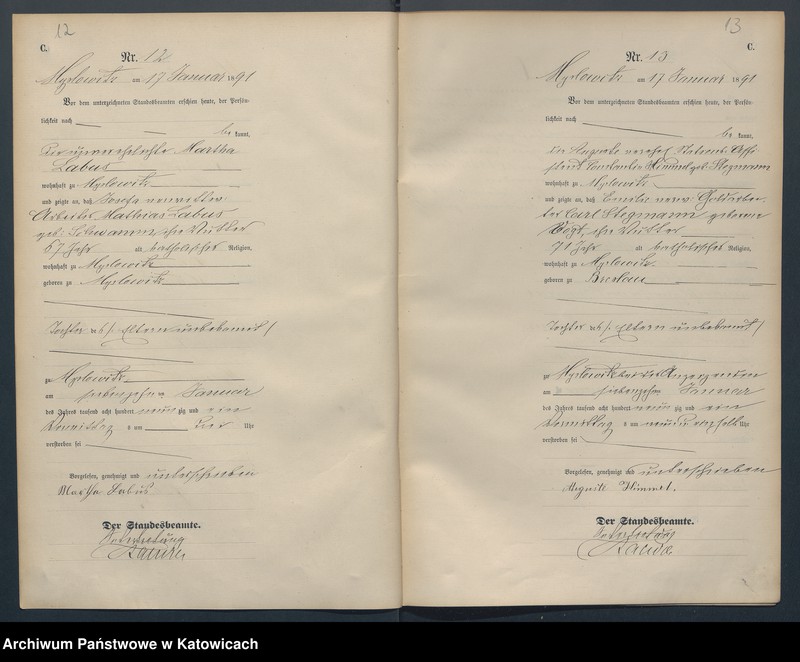 12
C.
Nr. 12
Myslowitz am 17 Januar 1891
Vor dem unterzeichneten Standesbeamten erschien heute, der Persön-
lichkeit nach
be kannt,
die unverehelichte Martha
Labus
wohnhaft zu Myslowitz
und zeigte an, daß Josefa verwittw
Arbeiter Mathias Labus
geb: ihre Mutter
67 Jahr alt katholischer Religion,
wohnhaft zu Myslowitz
geboren zu Myslowitz
Tochter der Eltern unbekannt
zu Myslowitz
am siebenzehn Januar
des Jahres tausend acht hundert neun zig und ein
Vormittag s um vier Uhr
verstorben sei
Vorgelesen, genehmigt und unterschrieben
Martha Labus
Der Standesbeamte.
In Vertretung
13
C.
Nr. 13
Myslowitz am 17 Januar 1891
Vor dem unterzeichneten Standesbeamten erschien heute, der Persön-
lichkeit nach
be kannt,
die Auguste verehel. Assi-
stent Himmel geb: Stegmann
wohnhaft zu Myslowitz
und zeigte an, daß Emilie verw:
ter Carl Stegmann geborene
Vogt, ihre Mutter
71 Jahr alt katholischer Religion,
wohnhaft zu Myslowitz
geboren zu Breslau
Tochter der Eltern unbekannt
zu Myslowitz bei der Anzeigenden
am siebenzehn Januar
des Jahres tausend acht hundert neun zig und ein
Vormittag s um neun einhalb Uhr
verstorben sei
Vorgelesen, genehmigt und unterschrieben
Himmel.
Der Standesbeamte.
In Vertretung
Archiwum Państwowe w Katowicach